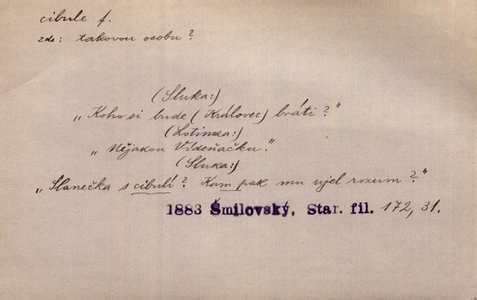 cibule f.
zde: takovou osobu?
(Sluka:)
"Koho si bude (Královec) bráti?"
(Lotinka:)
"Nějakou Vídeňačku."
(Sluka:)
"Slanečka s cibulí? Kam pak mu ujel rozum?"
1883 Šmilovský, Star. fil. 172, 31.